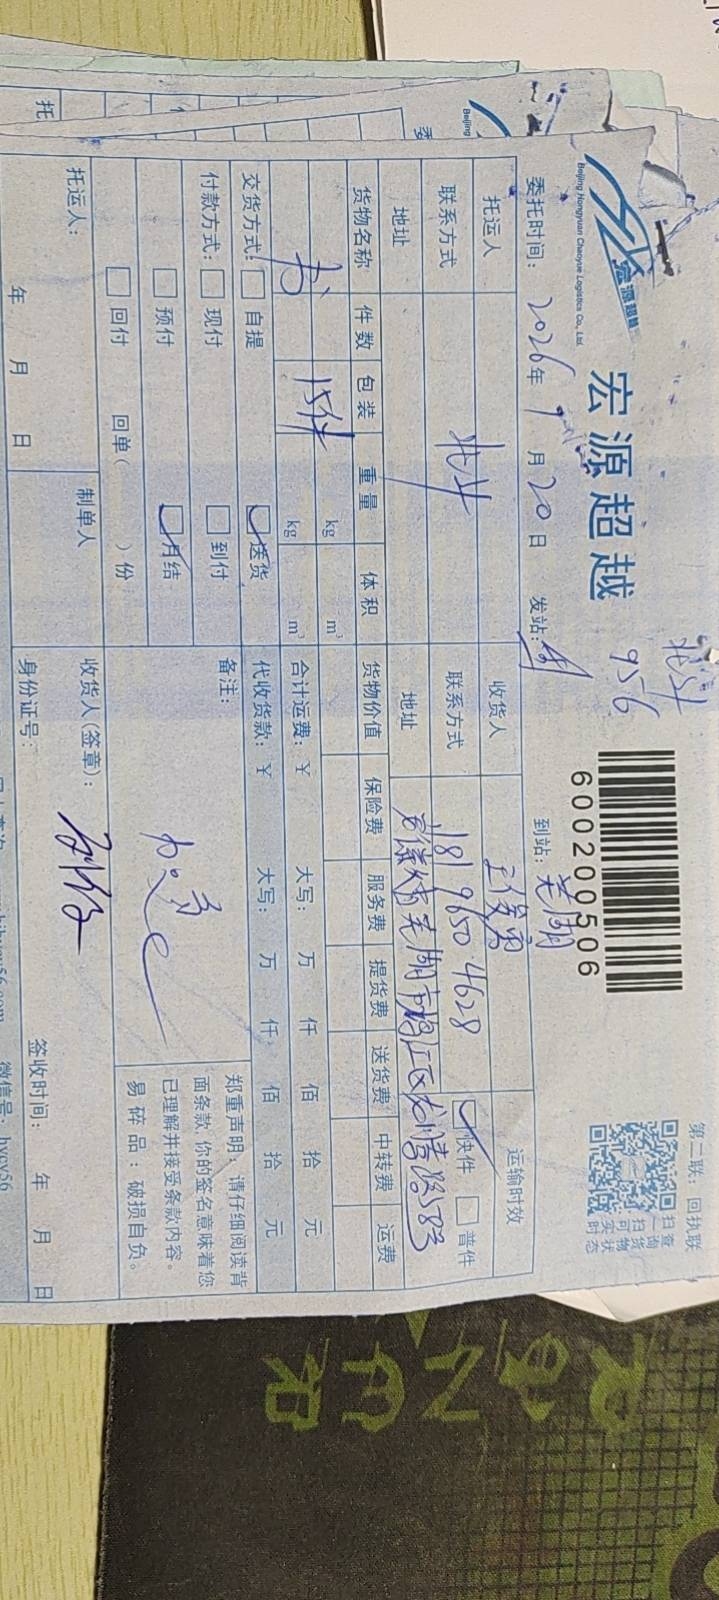 北斗
956
宏源超越
宏源超越
Beijing Hongyuan Chaoyue Logistics Co., Ltd.
600200506
第二联:回执联
扫一扫可实时
查询货物状态
委托时间: 2026年 9月 20日 发站: 到站: 芜湖
托运人 收货人 王俊勇 运输时效
联系方式 北斗 联系方式 181 9650 4628 快件 普件
地址 地址 安徽省芜湖市鸠江区
货物名称 件数 包装 重量 体积 货物价值 保险费 服务费 提货费 送货费 中转费 运费
书 15件 kg m³
kg m³ 合计运费:¥ 大写: 万 仟 佰 拾 元
交货方式: 自提 送货 代收货款:¥ 大写: 万 仟 佰 拾 元
付款方式: 现付 到付 备注:
预付 月结
回付 回单( )份
郑重声明:请仔细阅读背
面条款,你的签名意味着您
已理解并接受条款内容。
易碎品:破损自负。
托运人: 制单人 收货人(签章):
年 月 日 身份证号: 签收时间: 年 月 日
Beijing
托